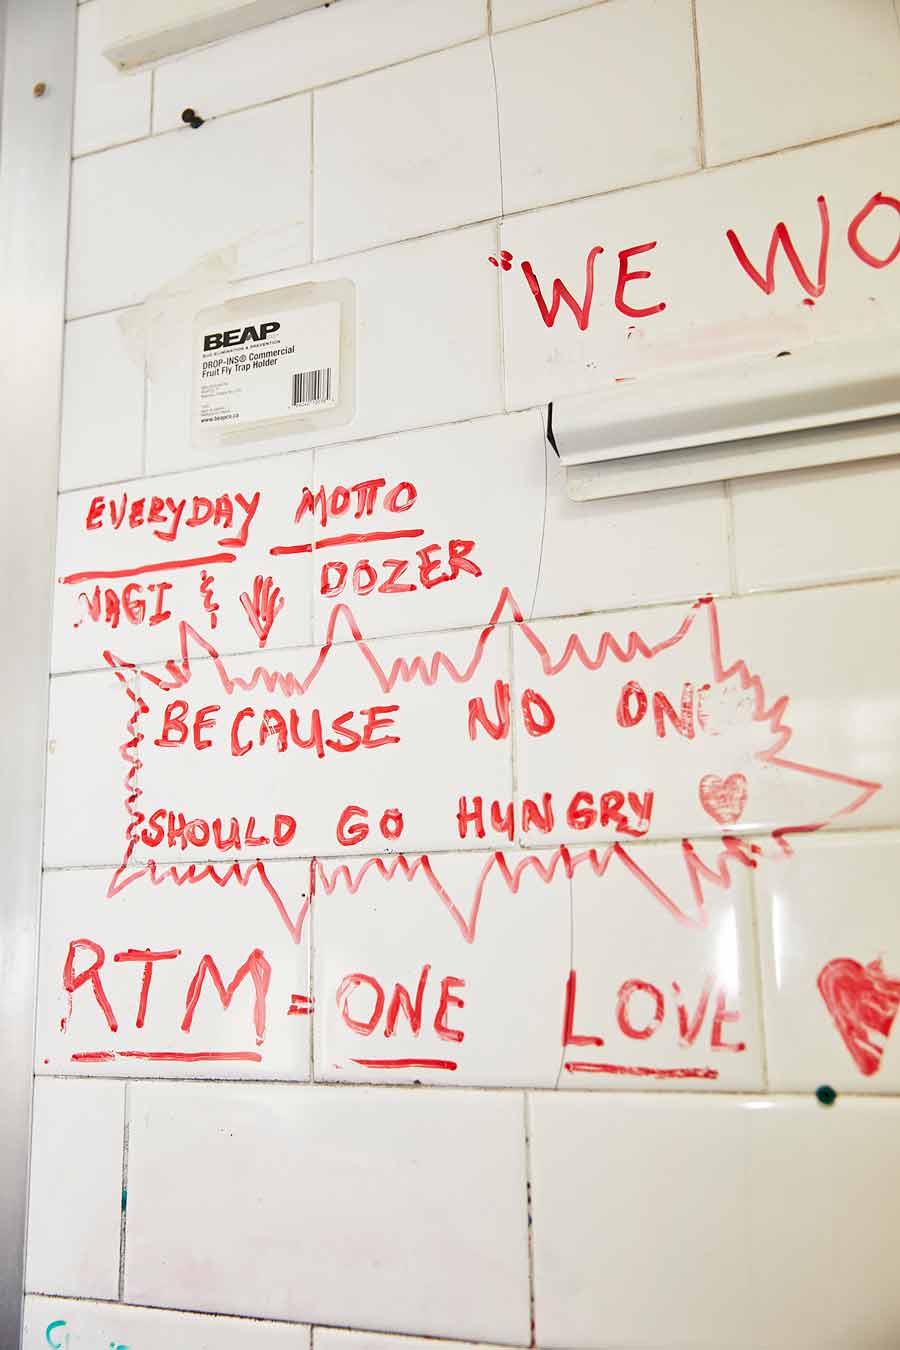 "WE WO
BEAP
BUG ELIMINATION & PREVENTION
DROP-INS® Commercial
Fruit Fly Trap Holder
www.beapco.ca
EVERYDAY MOTTO
NAGI & DOZER
BECAUSE NO ONE
SHOULD GO HUNGRY
RTM = ONE LOVE